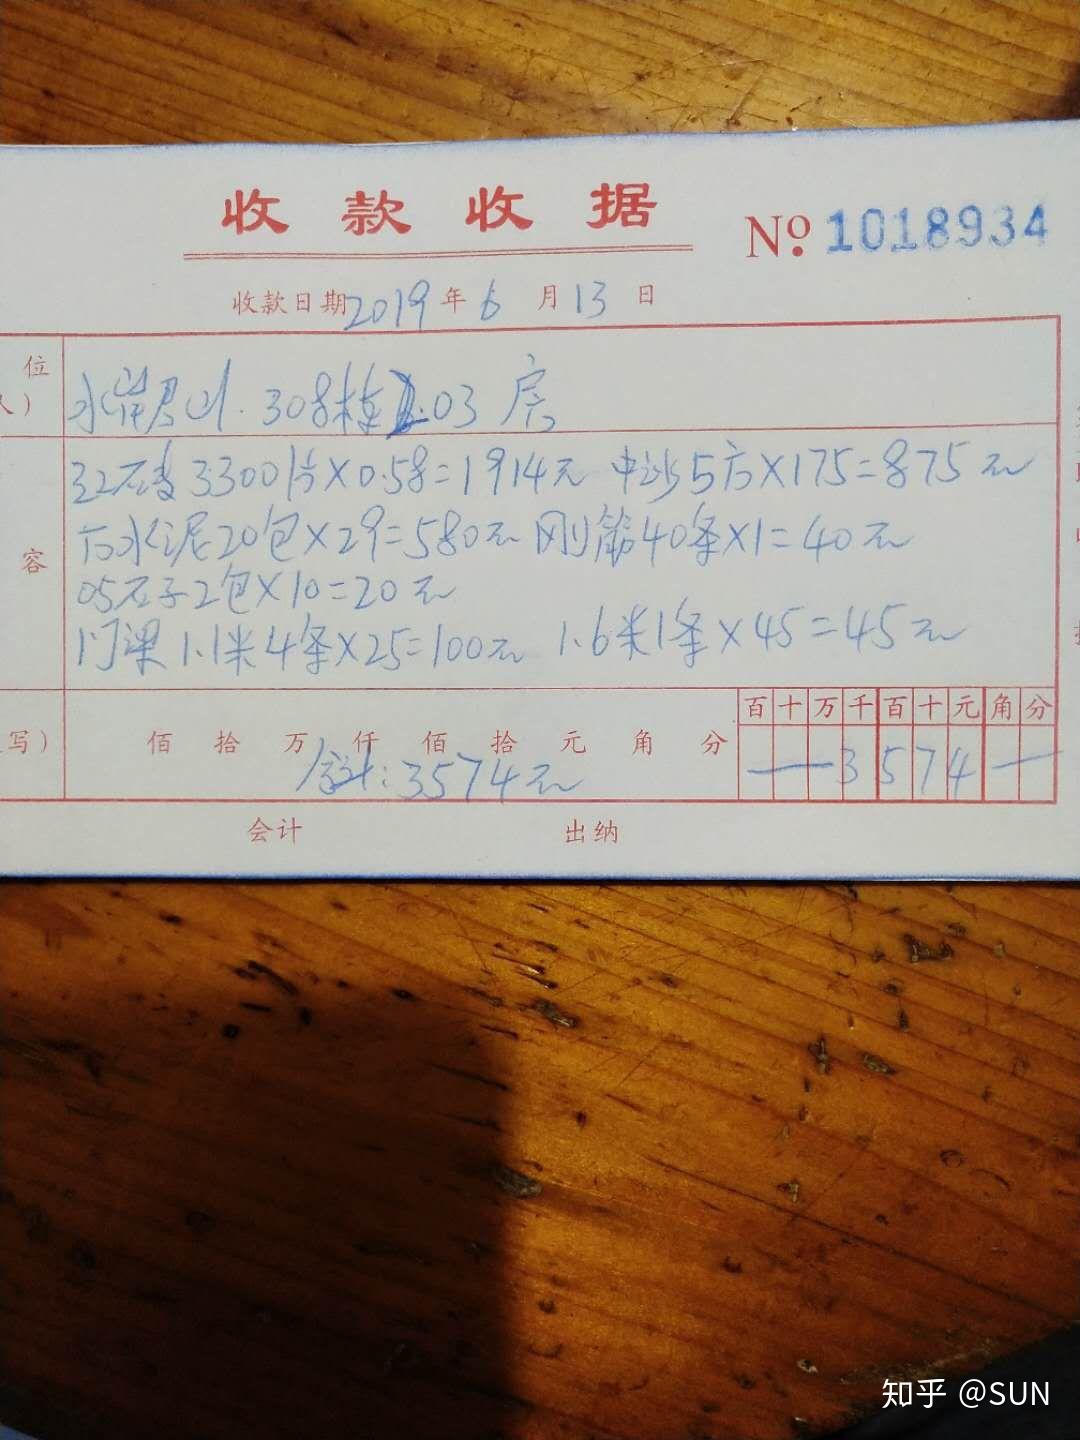 收款收据
No 1018934
收款日期 2019 年 6 月 13 日
位
人)
水岸君山. 308栋 03 房
容
红石砖 3300片×0.58=1914元 中沙5方×175=875元
水泥20包×29=580元 刚筋40条×1=40元
05石子2包×10=20元
门梁 1.1米4条×25=100元 1.6米1条×45=45元
写)
佰 拾 万 仟 佰 拾 元 角 分
百 十 万 千 百 十 元 角 分
合计: 3574元
— 3 5 7 4 —
会计 出纳
知乎 @SUN